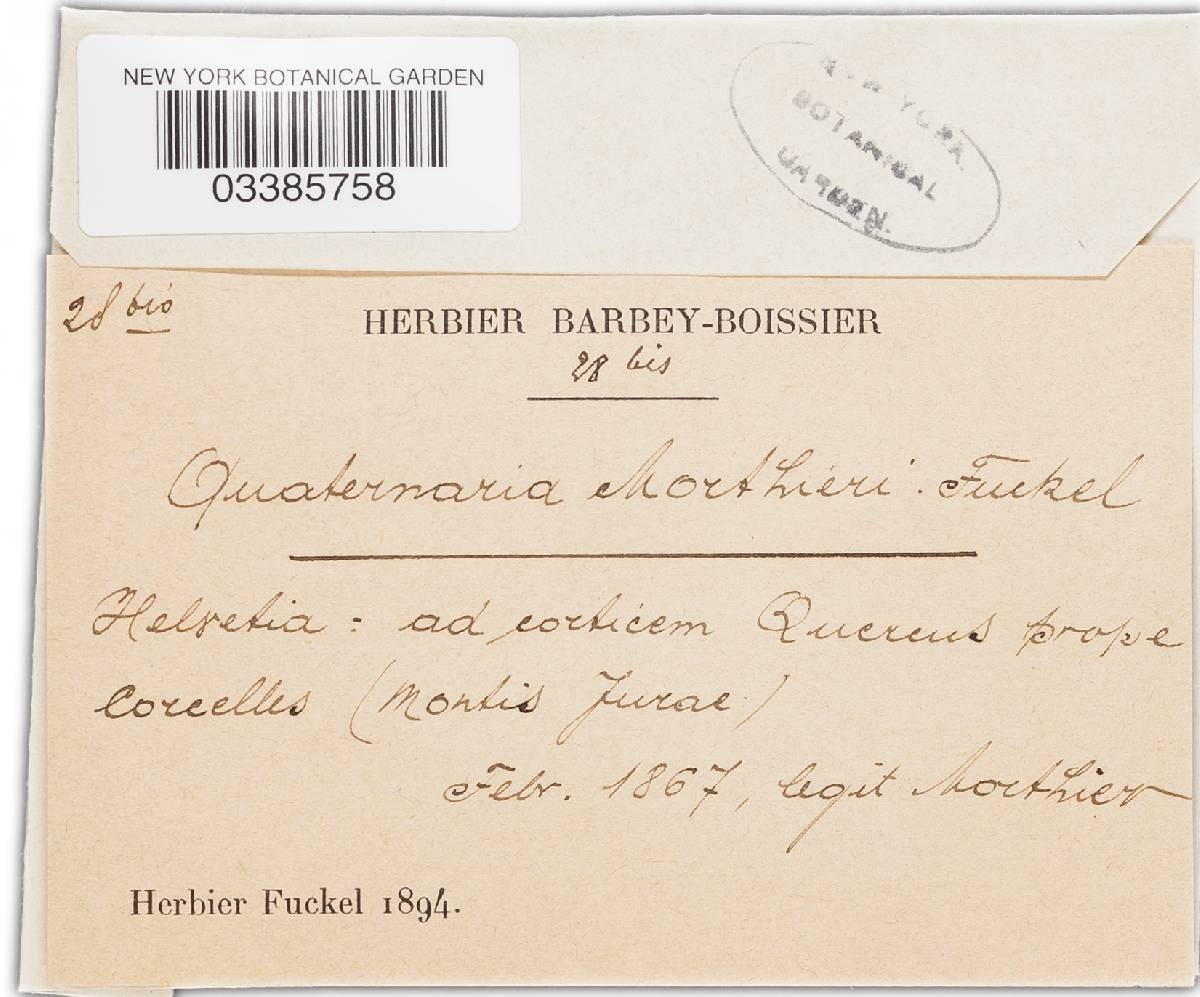 NEW YORK BOTANICAL GARDEN
03385758
NEW YORK
BOTANICAL
GARDEN.
28 bis
HERBIER BARBEY-BOISSIER
28 bis
Quaternaria Morthieri. Fuckel
Helvetia : ad corticem Quercus prope
Corcelles (Montis Jurae)
Febr. 1867, legit Morthier
Herbier Fuckel 1894.